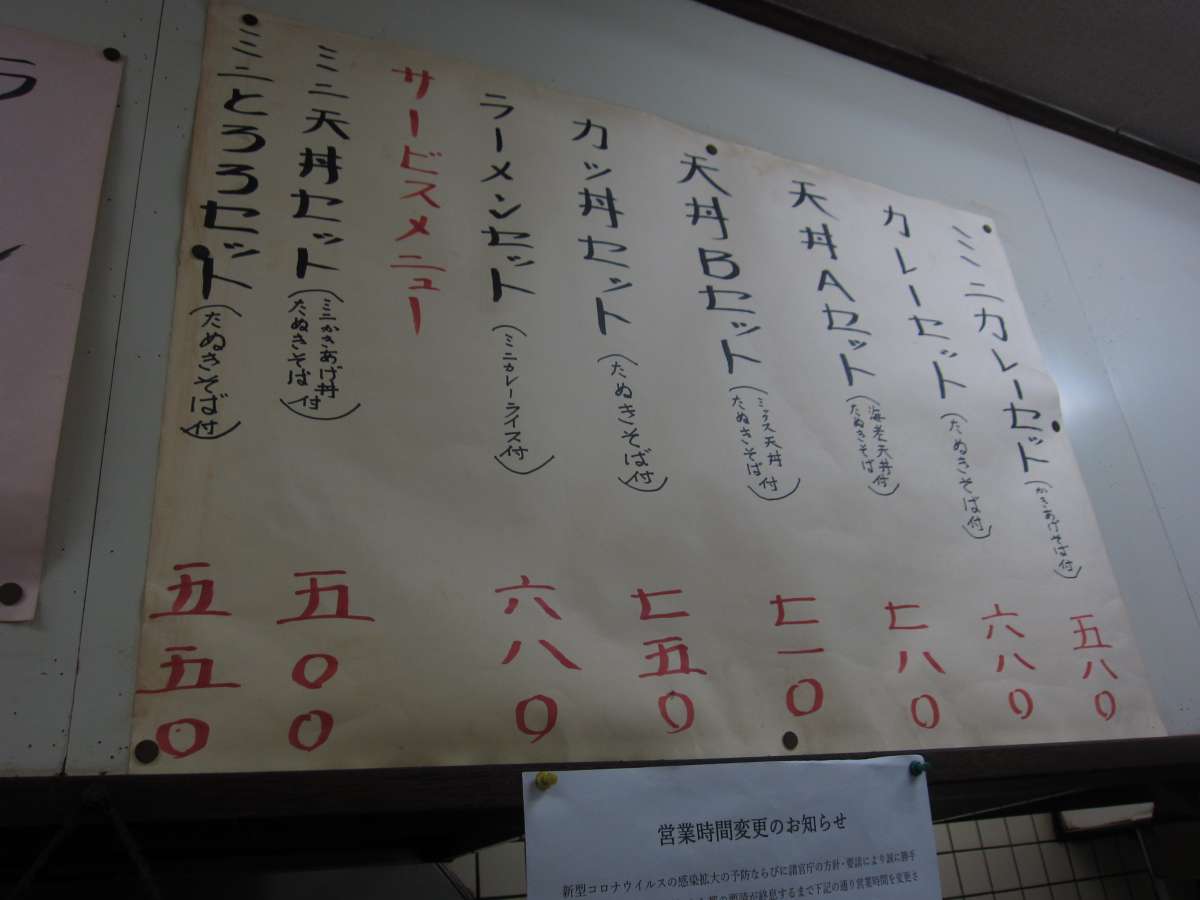 ミニカレーセット(かきあげそば付)五八〇
カレーセット(たぬきそば付)六八〇
天丼Aセット(海老天丼付
たぬきそば)七八〇
天丼Bセット(ミックス天丼
たぬきそば付)七一〇
カツ丼セット(たぬきそば付)七五〇
ラーメンセット(ミニカレーライス付)六八〇
サービスメニュー
ミニ天丼セット(ミニかきあげ丼
たぬきそば付)五〇〇
ミニとろろセット(たぬきそば付)五五〇
ラ
営業時間変更のお知らせ
新型コロナウイルスの感染拡大の予防ならびに諸官庁の方針・要請により誠に勝手
要請が終息するまで下記の通り営業時間を変更さ